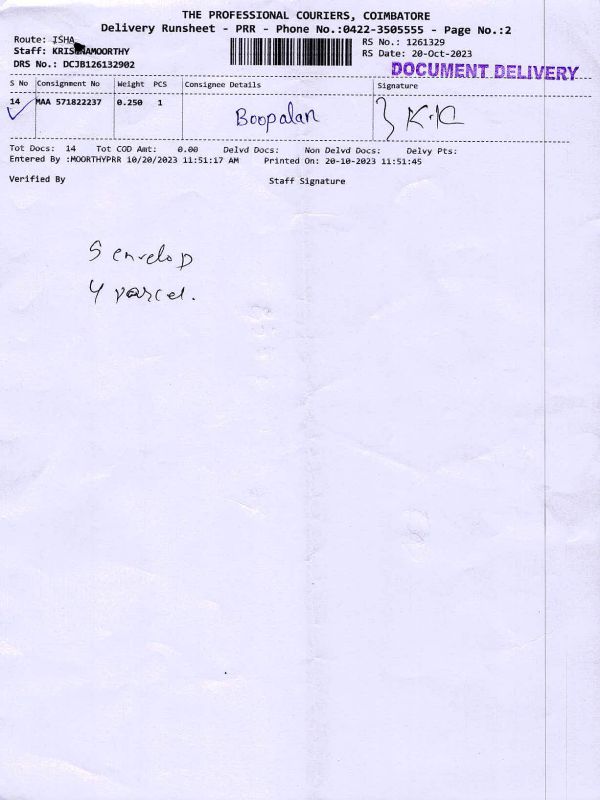 THE PROFESSIONAL COURIERS, COIMBATORE
Delivery Runsheet - PRR - Phone No.:0422-3505555 - Page No.:2
Route: ISHA
RS No.: 1261329
Staff: KRISHNAMOORTHY
RS Date: 20-Oct-2023
DRS No.: DCJB126132902
DOCUMENT DELIVERY
S No Consignment No Weight PCS Consignee Details Signature
14 MAA 571822237 0.250 1 Boopalan K.K
Tot Docs: 14 Tot COD Amt: 0.00 Delvd Docs: Non Delvd Docs: Delvy Pts:
Entered By :MOORTHYPRR 10/20/2023 11:51:17 AM Printed On: 20-10-2023 11:51:45
Verified By Staff Signature
5 envelop
4 parcel.